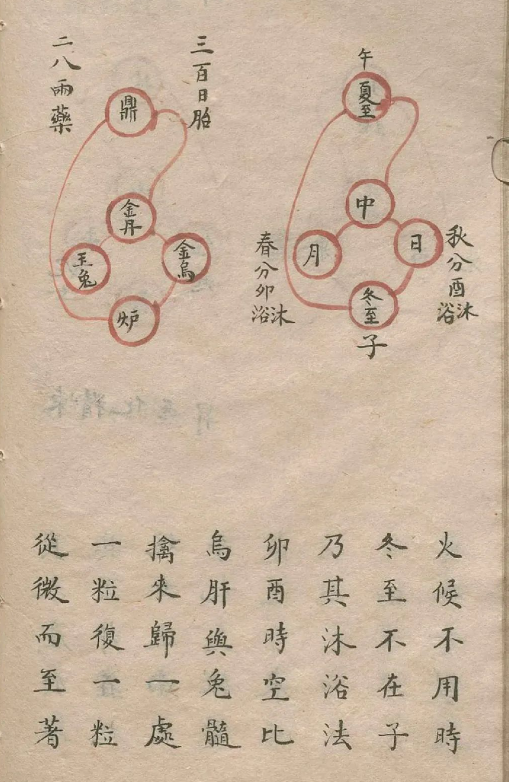 午
夏至
中
日
月
冬至
子
秋分酉
沐浴
春分卯
沐浴
三百日胎
二八兩藥
鼎
金丹
金烏
玉兔
炉
火候不用時
冬至不在子
乃其沐浴法
卯酉時空比
烏肝與兔髓
擒來歸一處
一粒復一粒
從微而至著